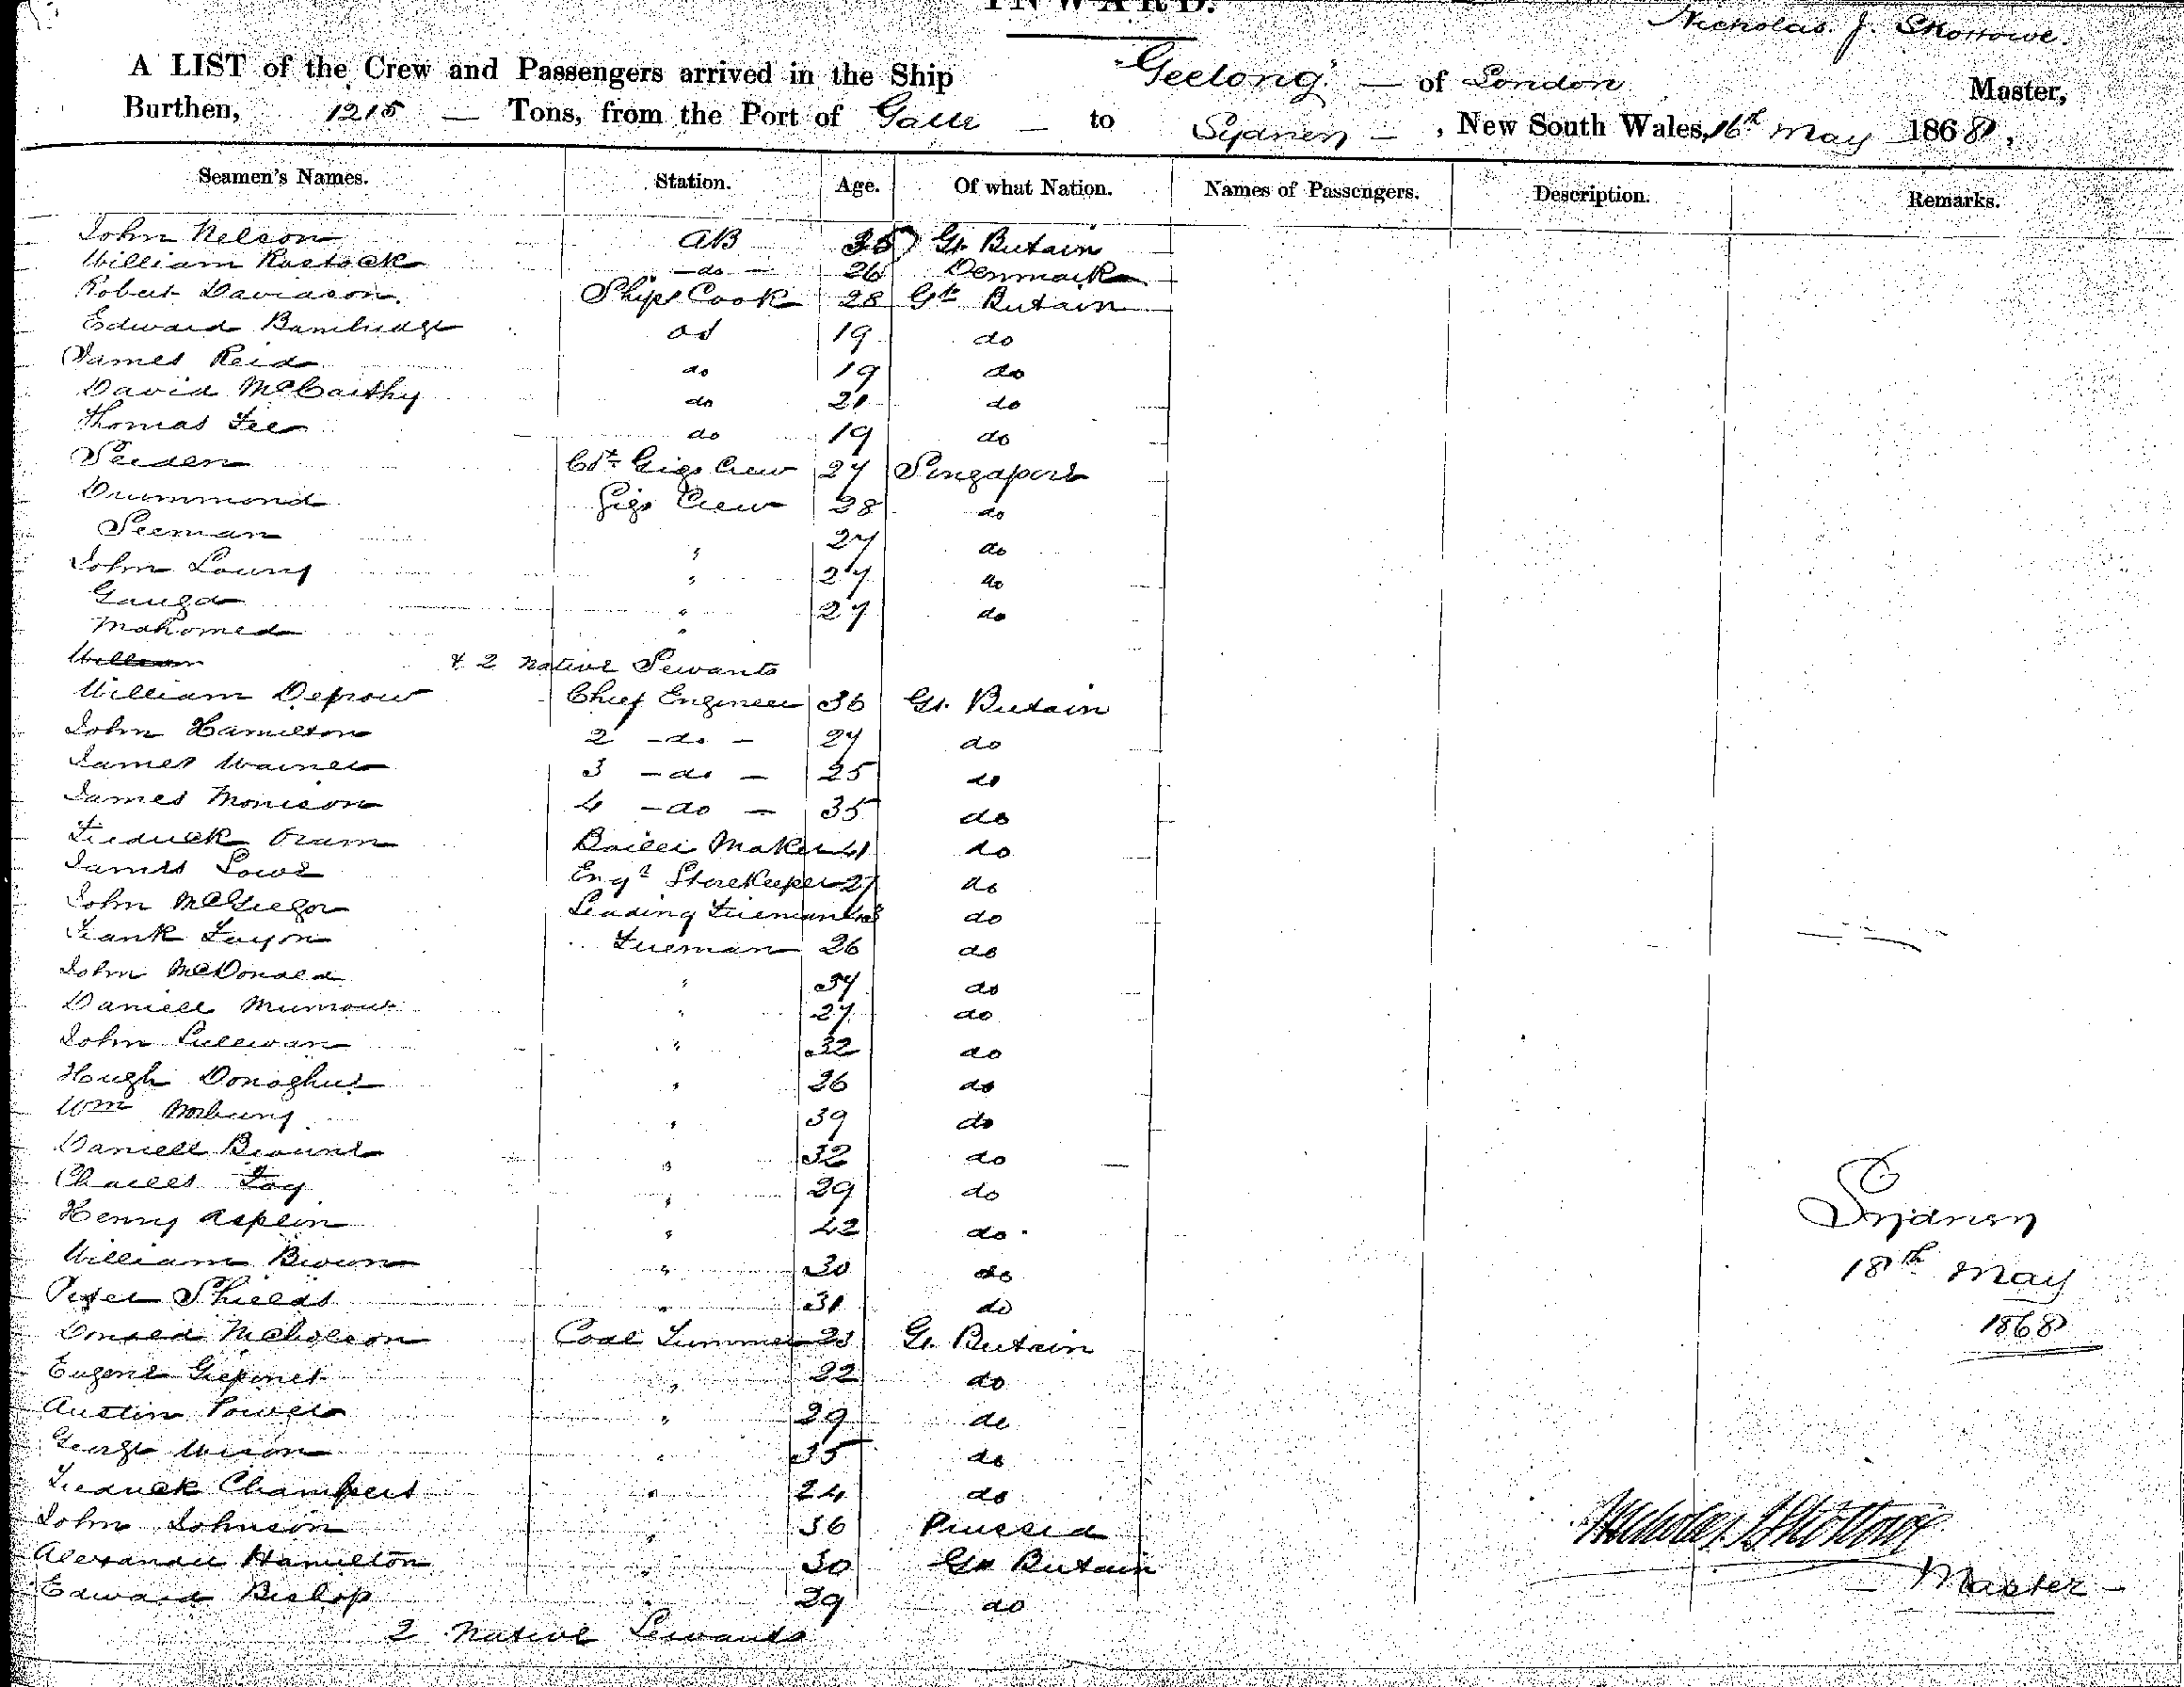 INWARD.
Nicholas J. Skottowe.
A LIST of the Crew and Passengers arrived in the Ship "Geelong" — of London Master,
Burthen, 1215 — Tons, from the Port of Galle — to Sydney — , New South Wales, 16th May 1868,
Seamen's Names. Station. Age. Of what Nation. Names of Passengers. Description. Remarks.
John Nelson AB 35 Gt. Britain
William Rostock —do— 26 Denmark
Robert Davidson. Ships Cook 28 Gt Britain
Edward Bambridge os 19 do
James Reid do 19 do
David McCarthy do 21 do
Thomas Lee do 19 do
Seiden Gigs Crew 27 Singapore
Drummond Gigs Crew 28 do
Seeman " 27 do
John Loung " 27 do
Gauga " 27 do
Mahomed "
William & 2 native Servants
William Deprow Chief Engineer 36 Gt. Britain
John Hamilton 2 —do— 27 do
James Warner 3 —do— 25 do
James Morrison 4 —do— 35 do
Fredrick Oram Boiler Maker 41 do
James Lowe Engr Storekeeper 27 do
John McGregor Leading Fireman do
Frank Fayon Fireman 26 do
John McDonald " 34 do
Daniell Munrow " 27 do
John Sullivan " 32 do
Hugh Donoghue " 26 do
Wm Norbury " 39 do
Daniell Browne " 32 do
Charles Fog " 29 do
Henry Asplin " 42 do
William Brown " 30 do
Peter Shields " 31 do
Donald Nicholson Coal Trimmer 23 Gt. Britain
Eugene " 22 do
Austin Power " 29 do
George Wison " 35 do
Fredrick Chambers " 24 do
John Johnson " 36 Prussia
Alexander Hamilton " 30 Gt Britain
Edward Bishop " 29 do
2 native Servants
Sydney
18th May
1868
Nicholas J Skottowe
— Master —